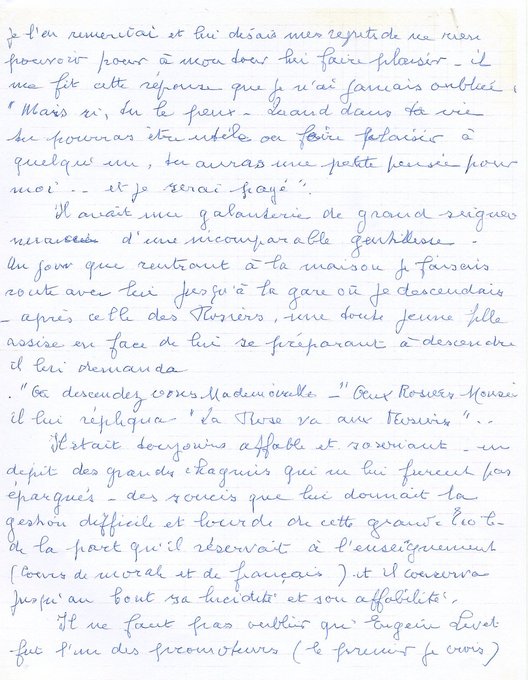 Je l'en remerciai et lui disais mes regrets de ne rien
pouvoir pour à mon tour lui faire plaisir - il
me fit cette réponse que je n'ai jamais oubliée :
"Mais si, tu le peux - Quand dans ta vie
tu pourras être utile ou faire plaisir à
quelqu'un, tu auras une petite pensée pour
moi... et je serai payé".
Il avait une galanterie de grand seigneur
d'une incomparable gentillesse -
Un jour que rentrant à la maison je faisais
route avec lui jusqu'à la gare où je descendais
- après celle des Rosiers, une toute jeune fille
assise en face de lui se préparant à descendre
il lui demanda
. "Où descendez vous Mademoiselle - "Aux Rosiers Monsieur
il lui répliqua "La Rose va aux Rosiers"..
Il était toujours affable et souriant - en
dépit des grands chagrins qui ne lui furent pas
épargnés - des soucis que lui donnait la
gestion difficile et lourde de cette grande
de la part qu'il réservait à l'enseignement
(Cours de morale et de français) et il conserva
jusqu'au bout sa lucidité et son affabilité.
Il ne faut pas oublier qu'Eugein Livet
fut l'un des promoteurs (le premier je crois)